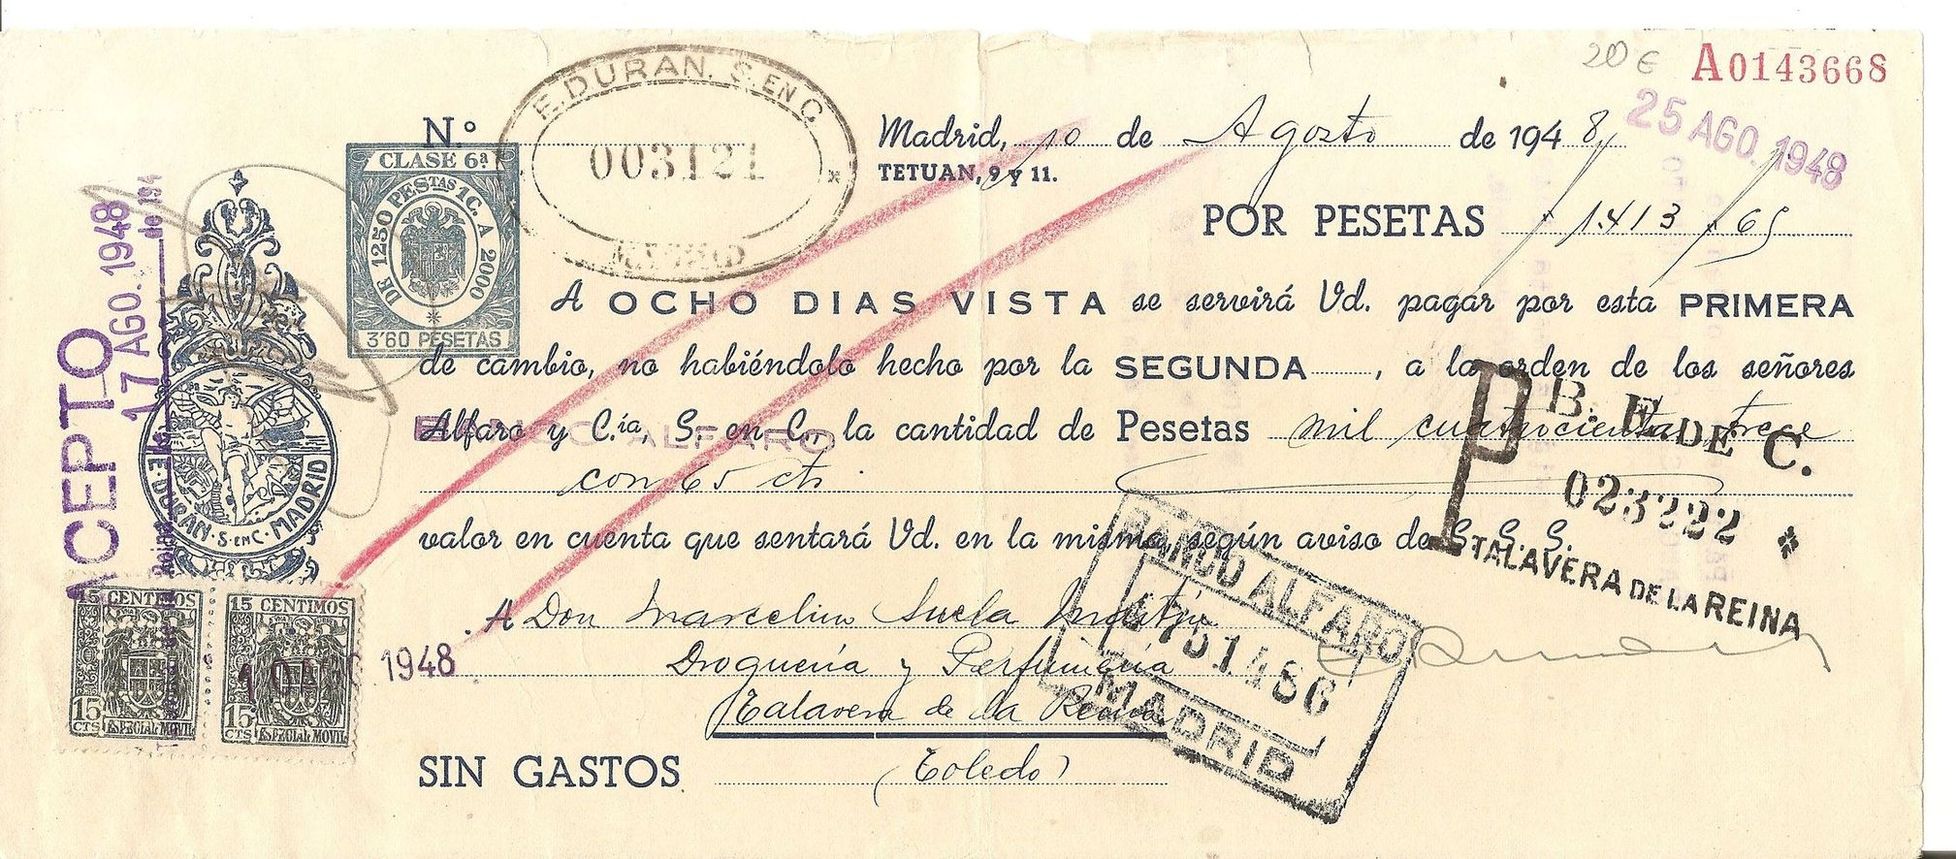 20 €
A0143668
25 AGO. 1948
N.º
E. DURAN. S. EN C.
003121
MADRID
Madrid, 10 de Agosto de 1948
TETUAN, 9 y 11.
CLASE 6ª
DE 1250 PESTAS 1C. A 2000
3'60 PESETAS
POR PESETAS 1.413,65
A OCHO DIAS VISTA se servirá Vd. pagar por esta PRIMERA
de cambio, no habiéndolo hecho por la SEGUNDA, a la orden de los señores
Alfaro y C.ía, S. en C., la cantidad de Pesetas mil cuatrocientas trece
con 65 cts
valor en cuenta que sentará Vd. en la misma, según aviso de S. S. S.
ALFARO
P
B. E. DE C.
023222
TALAVERA DE LA REINA
A Don Marcelino
Droguería y Perfumería
Talavera de la Reina
SIN GASTOS (Toledo)
BANCO ALFARO
MADRID
ACEPTO
17 AGO. 1948
de 194
E. DURAN · S. EN C. · MADRID
15 CENTIMOS
15 CTS ESPECIAL MOVIL
15 CENTIMOS
15 CTS ESPECIAL MOVIL
1948